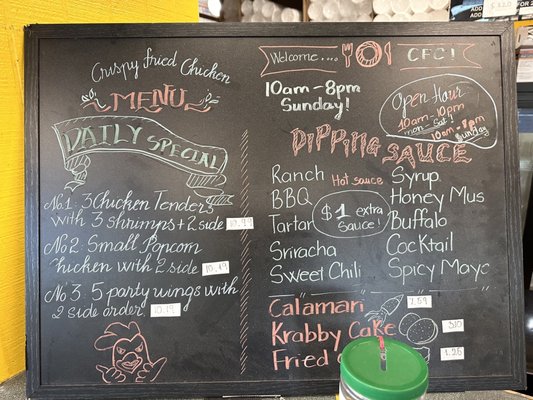 Crispy fried Chicken
MENU
DAILY SPECIAL
No.1: 3Chicken Tenders
with 3 shrimps + 2 side
No2: Small Popcorn
Chicken with 2 side 10.49
No3: 5 party wings with
2 side order
Welcome... CFC!
10am - 8pm
Sunday!
Open Hour
10am - 10pm
mon - Sat!
10am - 8pm
Sunday
DIPPING SAUCE
Ranch Hot sauce Syrup
BBQ Honey Mus
Tartar $1 extra Sauce! Buffalo
Sriracha Cocktail
Sweet Chili Spicy Mayo
Calamari 7.59
Krabby Cake
Fried 1.25